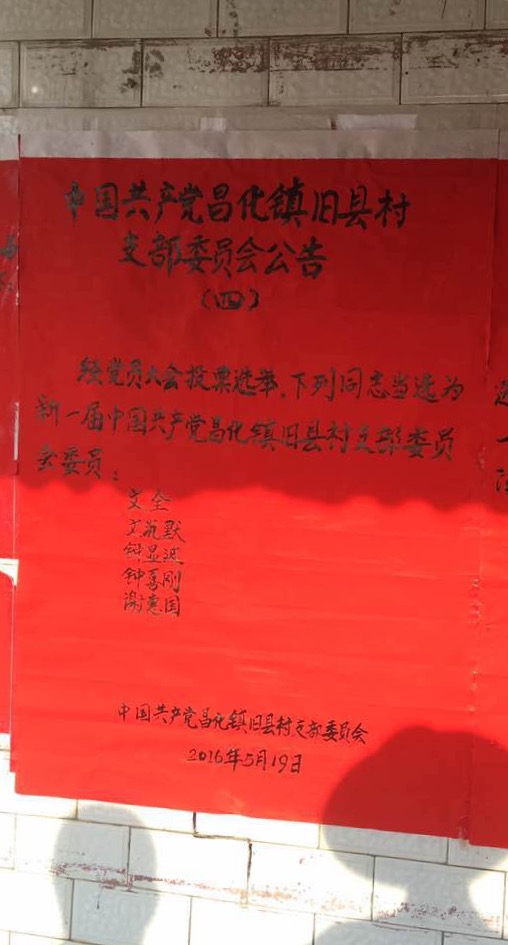 中国共产党昌化镇旧县村
支部委员会公告
（四）
经党员大会投票选举，下列同志当选为
新一届中国共产党昌化镇旧县村支部委员
会委员：
文全
文 默
钟显波
钟喜刚
谢宪国
中国共产党昌化镇旧县村支部委员会
2016年5月19日